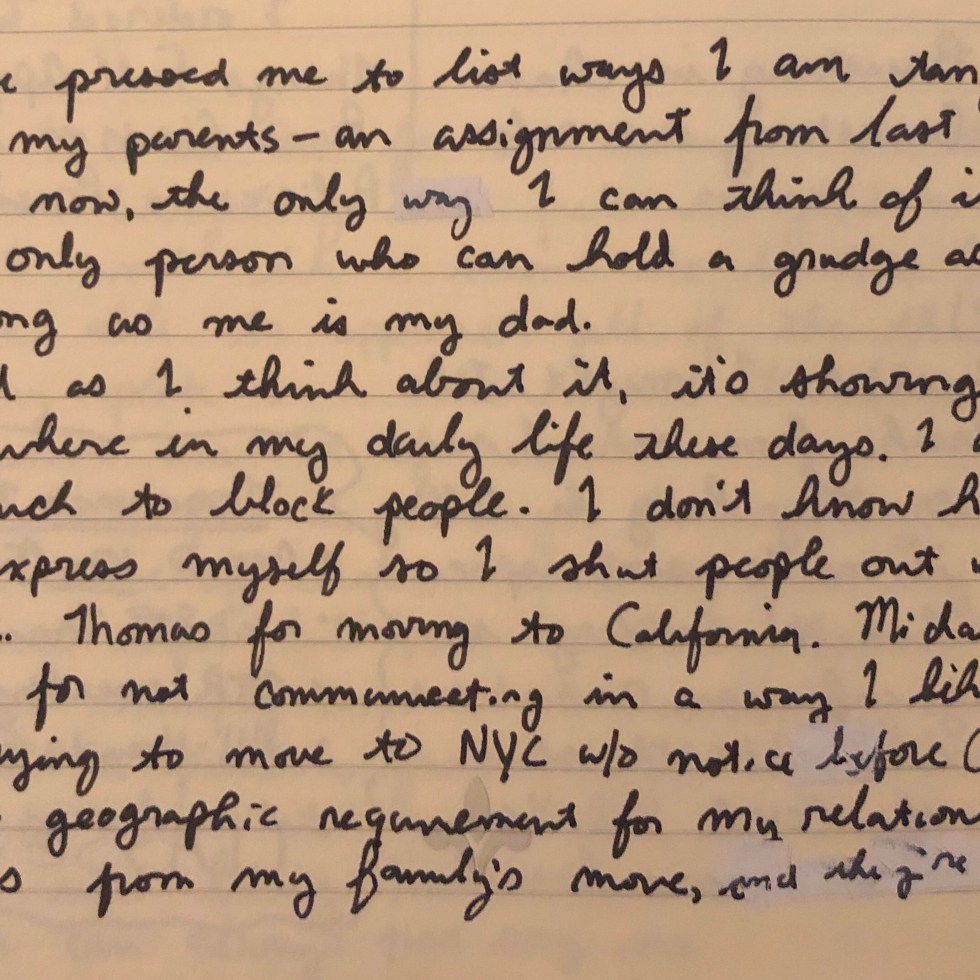 pressed me to list ways I am
my parents – an assignment from last
now, the only way I can think of
only person who can hold a grudge
ng as me is my dad.
as I think about it, it's showing
where in my daily life these days. I
uch to block people. I don't know h
xpress myself so I shut people out
.. Thomas for moving to California.
for not communicating in a way I
ying to move to NYC w/o notice before (
geographic requirement for my relation
s from my family's move, and they're